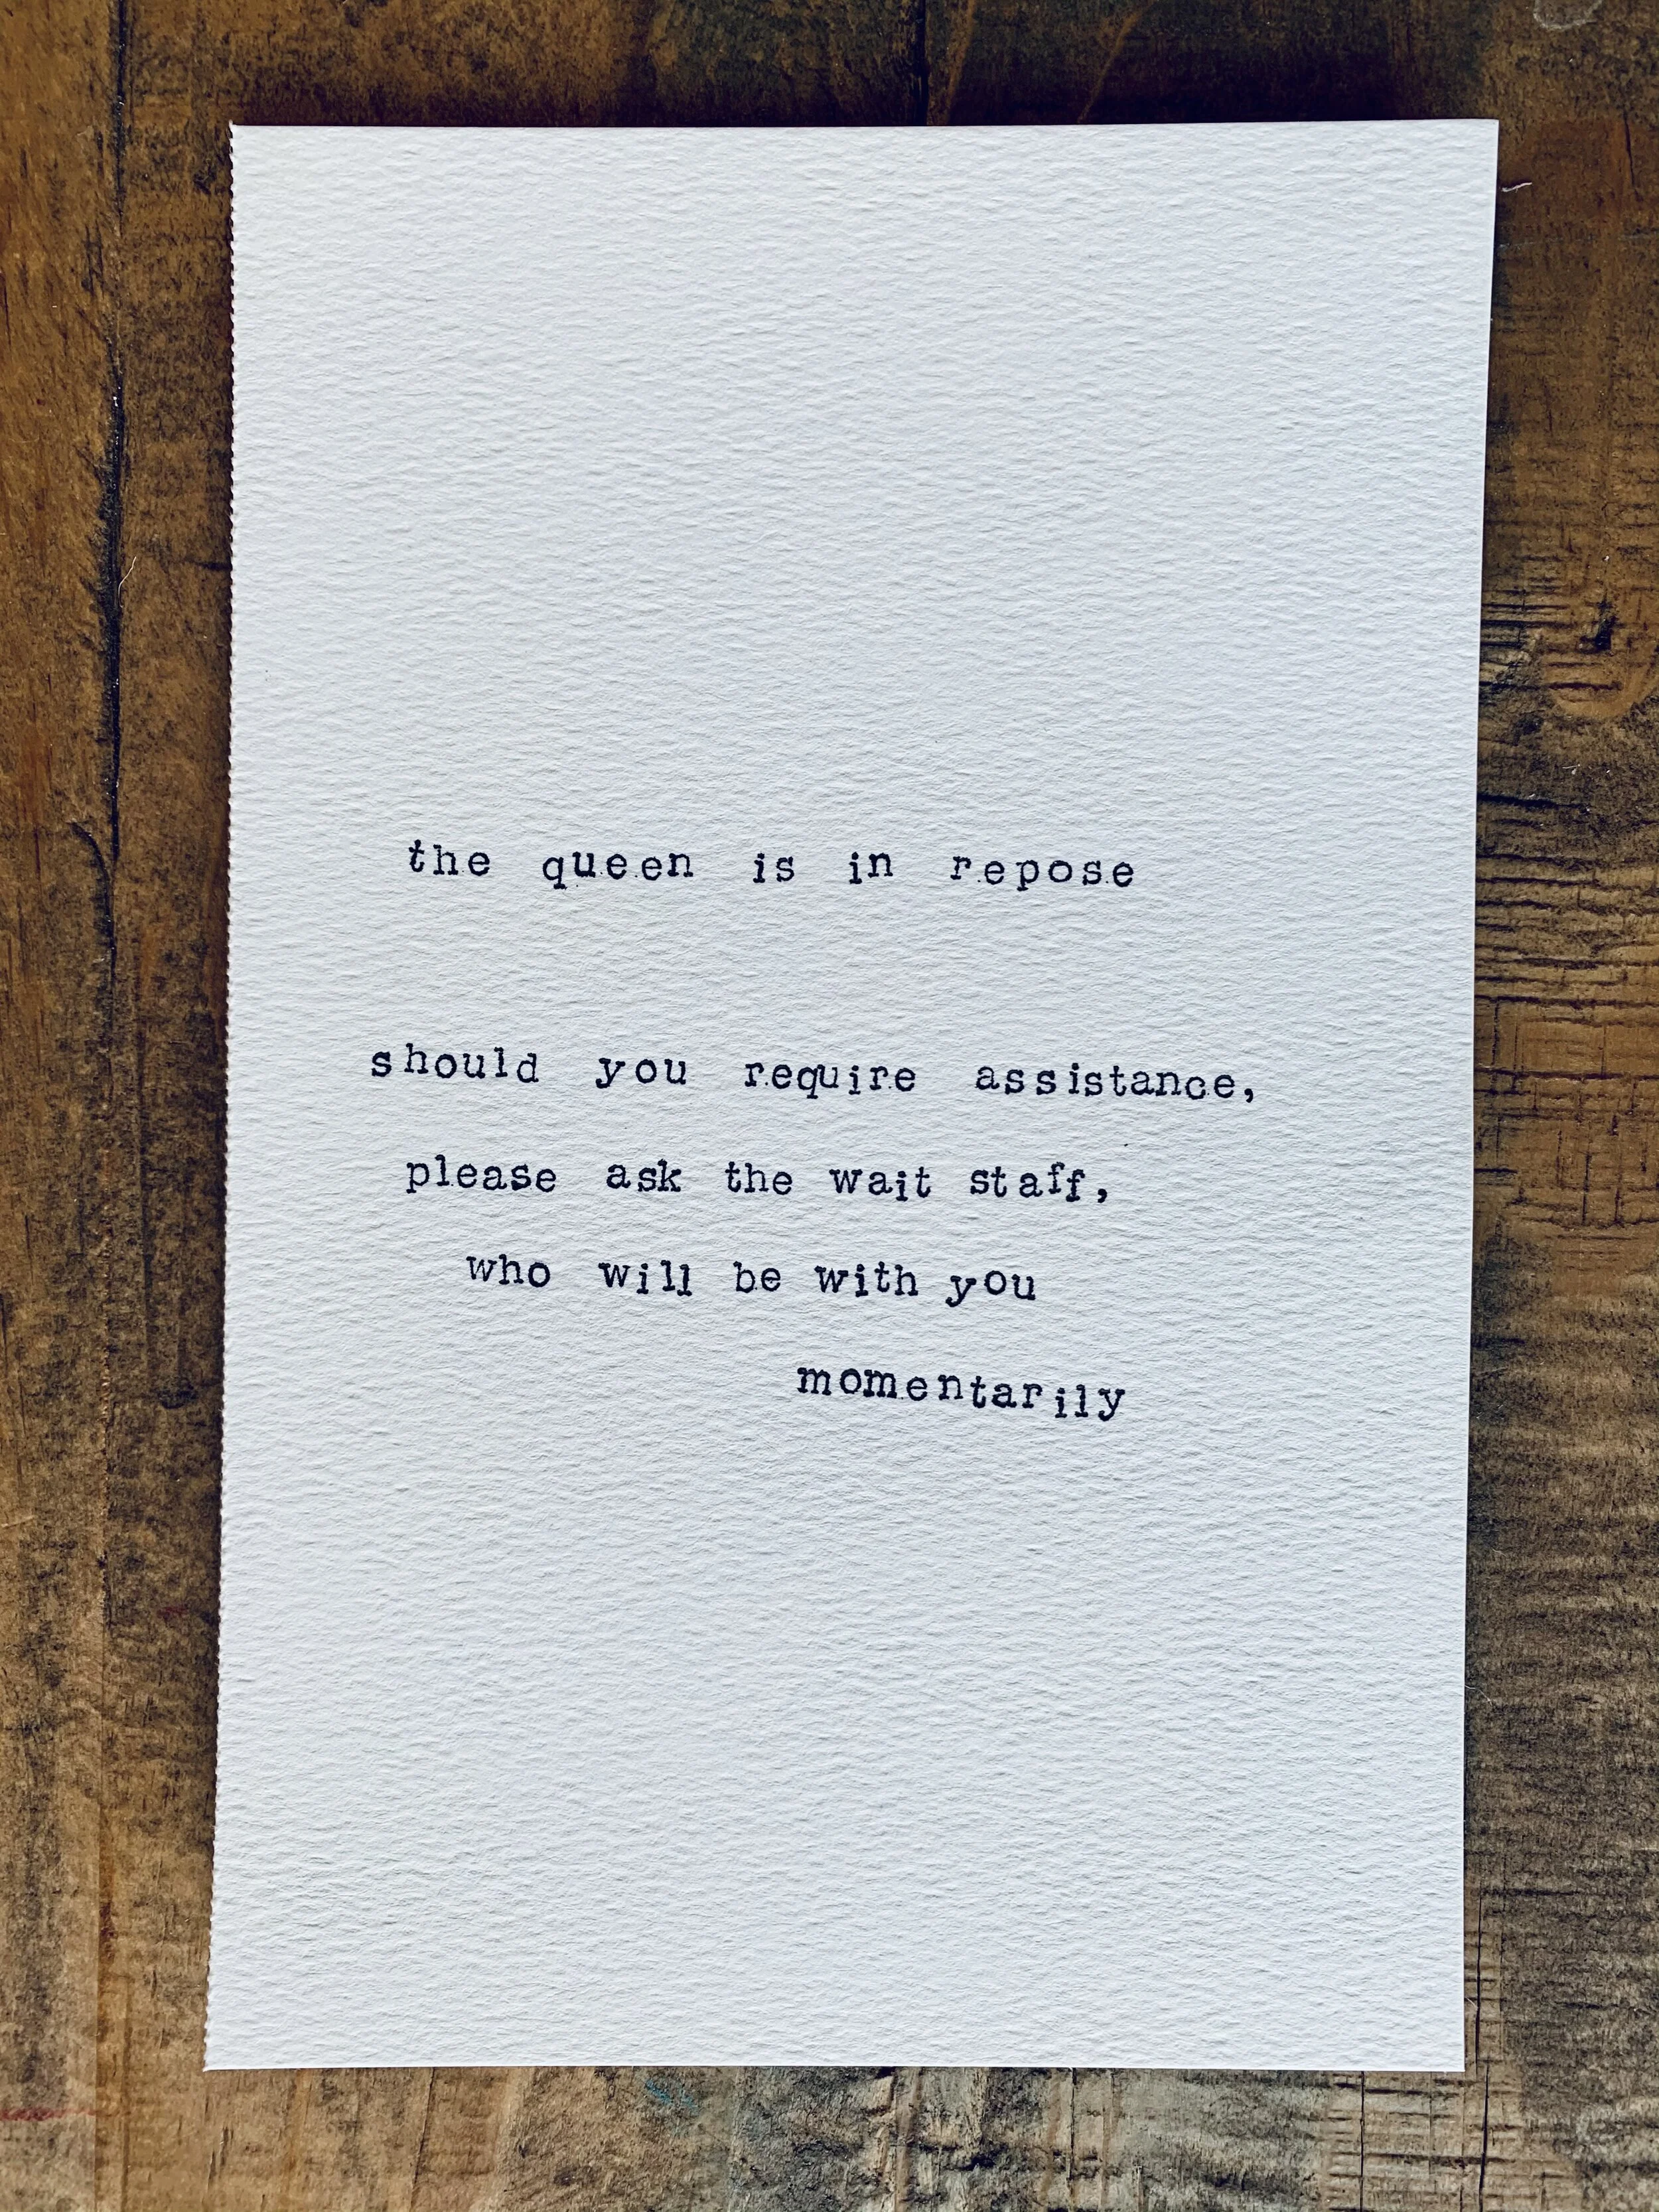 the queen is in repose
should you require assistance,
please ask the wait staff,
who will be with you
momentarily